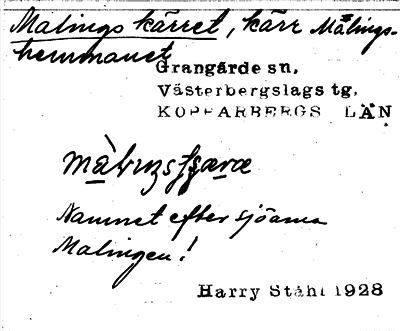 Malings kärret, kärr Malings-
hemmanet
Grangärde sn,
Västerbergslags tg,
KOPPARBERGS LÄN
Namnet efter sjöarna
Malingen!
Harry Ståhl 1928